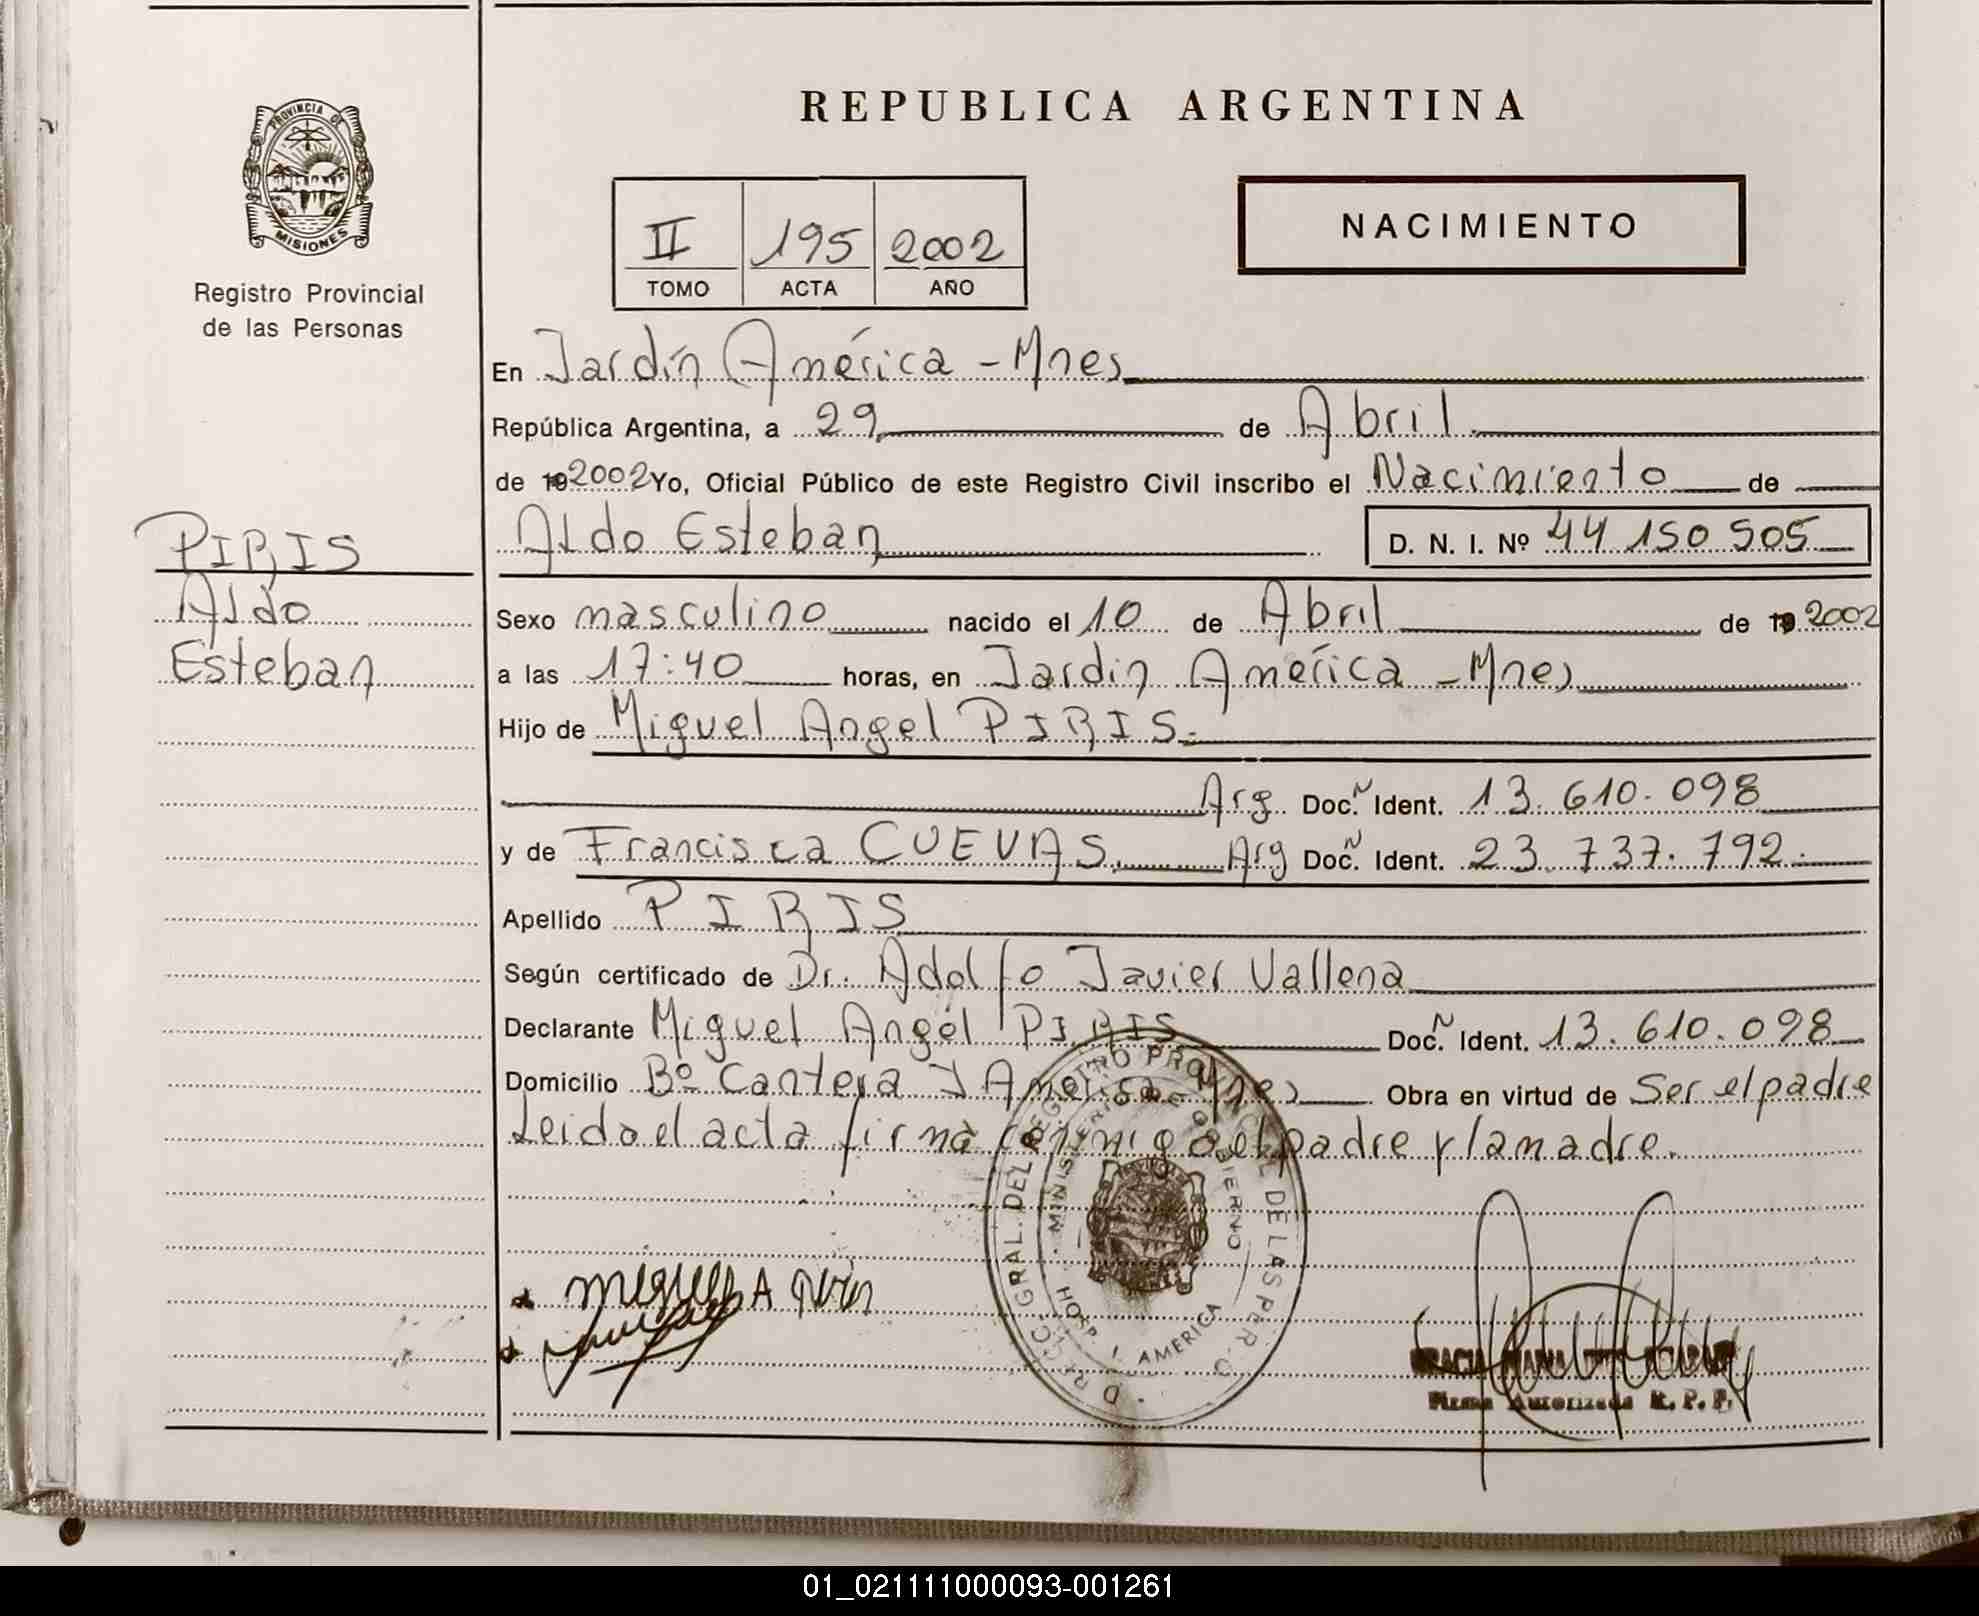 REPUBLICA ARGENTINA
PROVINCIA DE
MISIONES
Registro Provincial
de las Personas
NACIMIENTO
II 195 2002
TOMO ACTA AÑO
En Jardín América - Mnes
República Argentina, a 29 de Abril
de 19 2002 Yo, Oficial Público de este Registro Civil inscribo el Nacimiento de
PIRIS
Aldo
Esteban
Aldo Esteban D. N. I. Nº 44 150 505
Sexo masculino nacido el 10 de Abril de 19 2002
a las 17:40 horas, en Jardin América - Mnes
Hijo de Miguel Angel PIRIS.
Arg Doc. Ident. 13.610.098
y de Francisca CUEVAS. Arg Doc. Ident. 23.737.792.
Apellido PIRIS
Según certificado de Dr. Adolfo Javier Vallena
Declarante Miguel Angel PIRIS Doc. Ident. 13.610.098
Domicilio Bº Cantera J América Mnes Obra en virtud de Ser el padre
Leido el acta firma conmigo el padre y la madre.
DIRECC. GRAL. DEL REGISTRO PROVINCIAL DE LAS PER.
MINISTERIO DE GOBIERNO
HOSP. J. AMERICA
Miguel A Piris
Firma Autorizada R. P. P.
01_021111000093-001261